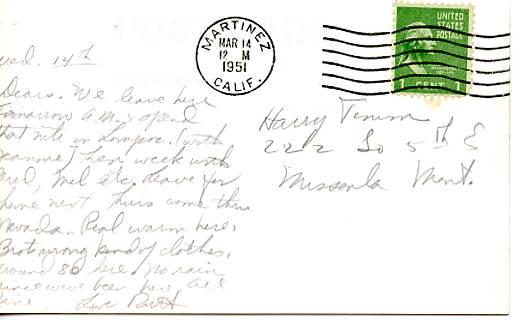 MARTINEZ
MAR 14
12 M
1951
CALIF.
UNITED
STATES
POSTAGE
CENT 1
Wed. 14th
Dears. We leave here
Tomorrow A.M. & spend
that nite in (with
Jeanne) then week with
Mel etc. Leave for
home next Thurs come thru
Nevada. Real warm here,
Brot wrong kind of clothes,
around 80 here. No rain
since we've been here. All
fine. Love
Harry Timm
222 So 5th E
Missoula Mont.